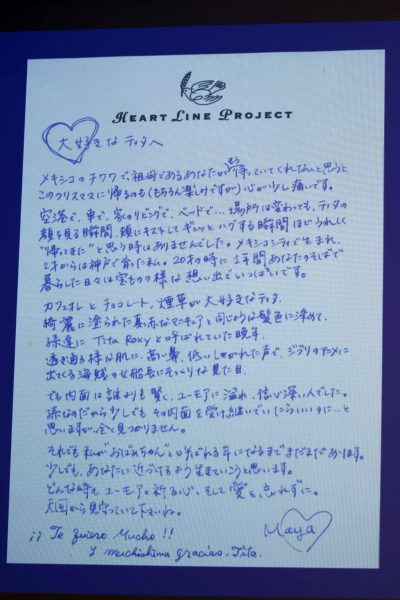 HEART LINE PROJECT
大好きなティタへ
メキシコのチワワで、祖母であるあなたがもう待っていてくれないと思うと
このクリスマスに帰るのも(もちろん楽しみですが)心が少し痛いです。
空港で、車で、家のリビングで、ベッドで…場所は変わっても、ティタの
顔を見る瞬間、頬にキスをしてギュッとハグする瞬間ほどうれしく
"帰ってきた"と思う時はありませんでした。メキシコシティで生まれ、
2才からは神戸で育った私。20才の時に1年間あなたのそばで
暮らした日々は宝もの様な想い出でいっぱいです。
カフェオレとチョコレート、煙草が大好きなティタ。
綺麗に塗られた真赤なマニキュアと同じような髪色に染めて、
孫達に Tita Roxy と呼ばれていた晩年。
透き通る様な肌に、高い鼻、低いしゃがれた声で、ジブリのアニメに
出てくる海賊の女船長にそっくりな見た目。
でも内面は誰よりも賢く、ユーモアに溢れ、信心深い人でした。
孫なのだから少しでもその内面を受け継いでいたらいいのに…と
思いますが、全く見つかりません。
それでも私が"おばあちゃん"と呼ばれる年になるまでまだまだあります。
少しでも、あなたに近づけるよう生きていこうと思います。
どんな時も、ユーモアと祈る心、そして愛を忘れずに。
天国から見守っていて下さいね。
¡¡ Te quiero Mucho !!
Y muchishima gracias, Tita.
Maya